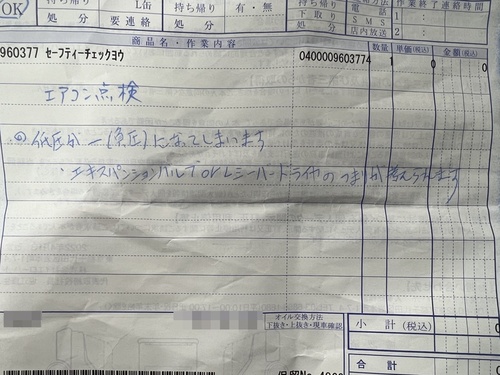 OK
持ち帰り L缶 持ち帰り 有・無 持ち帰り 電話 作業終了連絡時間
処分 要連絡 処分 下取り SMS 1 :
処分 店内放送 2 :
商品名・作業内容 数量 単価(税込) 金額(税込)
960377 セーフティーチェックヨウ 0400009603774 1 0 0
エアコン点検
低圧が－(負圧)になってしまいます
・エキスパンションバルブorレシーバードライヤのつまりが考えられます
オイル交換方法
下抜き・上抜き・現車確認
小計(税込) 0
合計